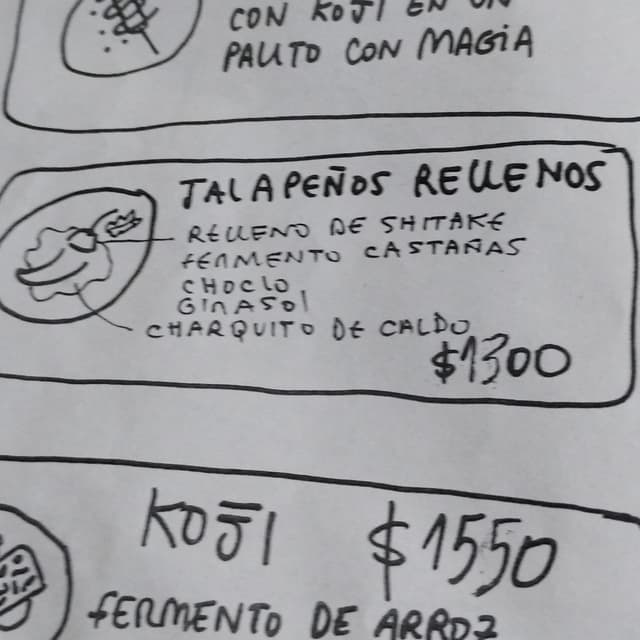 CON KOJI EN UN
PALITO CON MAGIA
JALAPEÑOS RELLENOS
RELLENO DE SHITAKE
FERMENTO CASTAÑAS
CHOCLO
GIRASOL
CHARQUITO DE CALDO
$1300
KOJI $1550
FERMENTO DE ARROZ